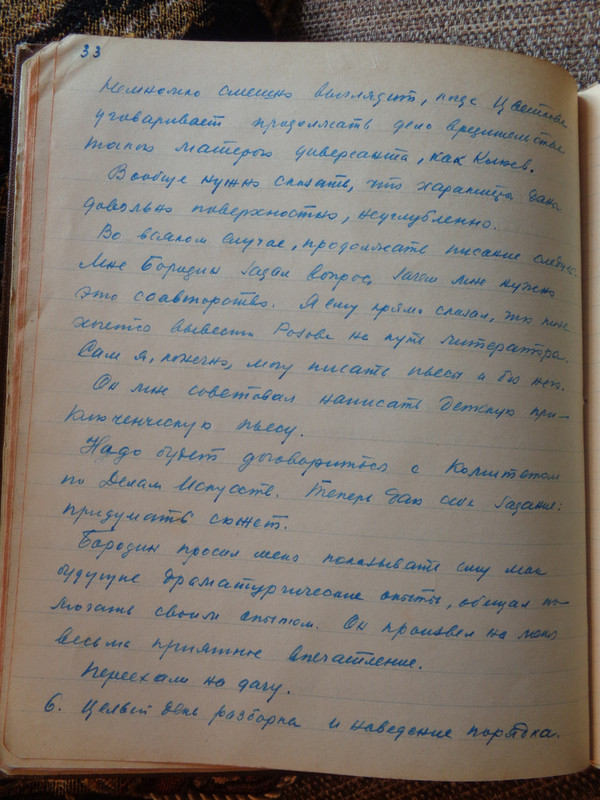 33
Немножко смешно выглядит, когда Цветков
уговаривает продолжать дело вредительства
такого матерого диверсанта, как Князев.
Вообще нужно сказать, что характеры даны
довольно поверхностно, неуглубленно.
Во всяком случае, продолжать писание следует.
Мне Бородин задал вопрос, зачем мне нужно
это соавторство. Я ему прямо сказал, что мне
хочется вывести Розова на путь литератора.
Сам я, конечно, могу писать пьесы и без него.
Он мне советовал написать детскую при-
ключенческую пьесу.
Надо будет договориться с Комитетом
по Делам Искусств. Теперь даю себе задание:
придумать сюжет.
Бородин просил меня показывать ему мои
будущие драматургические опыты, обещал по-
могать своим опытом. Он произвел на меня
весьма приятное впечатление.
Переехали на дачу.
6. Целый день разборка и наведение порядка.